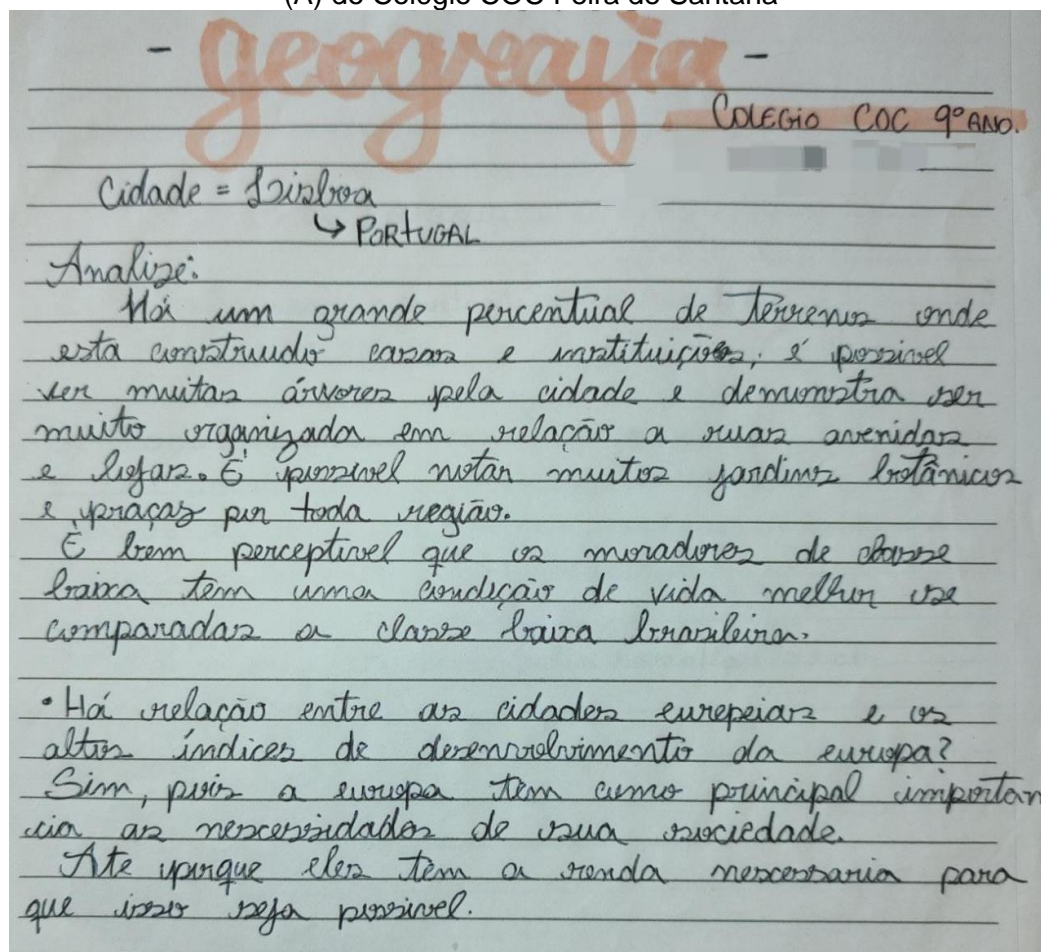 (A) do Colégio COC Feira de Santana
- geografia -
COLEGIO COC 9º ANO.
Cidade = Lisboa
↳ PORTUGAL
Analize:
Há um grande percentual de terrenos onde
esta construudo casas e instituições, é possivel
ver muitas árvores pela cidade e demonstra ser
muito organizada em relação a ruas avenidas
e ligas. É possivel notar muitos jardins botânicos
e praças por toda região.
É bem perceptivel que os moradores de classe
baixa tem uma condição de vida melhor se
comparadas a classe baixa brasileira.
• Há relação entre as cidades eurepeias e os
altos índices de desenvolvimento da europa?
Sim, pois a europa tem como principal importan
cia as nescessidades de sua sociedade.
Ate porque eles tem a renda nescessaria para
que isso seja possivel.